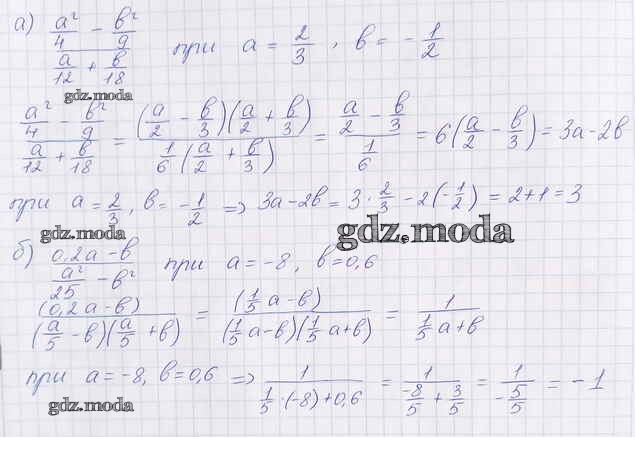 а) (a²/4 − b²/9)/(a/12 + b/18) при a = 2/3, b = −1/2
gdz.moda
(a²/4 − b²/9)/(a/12 + b/18) = ((a/2 − b/3)(a/2 + b/3))/(1/6(a/2 + b/3)) = (a/2 − b/3)/(1/6) = 6(a/2 − b/3) = 3a−2b
при a = 2/3, b = −1/2 => 3a−2b = 3·2/3 − 2(−1/2) = 2+1 = 3
gdz.moda
gdz.moda
б) (0,2a−b)/(a²/25 − b²) при a = −8, b = 0,6
(0,2a−b)/((a/5 − b)(a/5 + b)) = (1/5 a−b)/((1/5 a−b)(1/5 a+b)) = 1/(1/5 a+b)
при a = −8, b = 0,6 => 1/(1/5·(−8)+0,6) = 1/(−8/5 + 3/5) = 1/(−5/5) = −1
gdz.moda